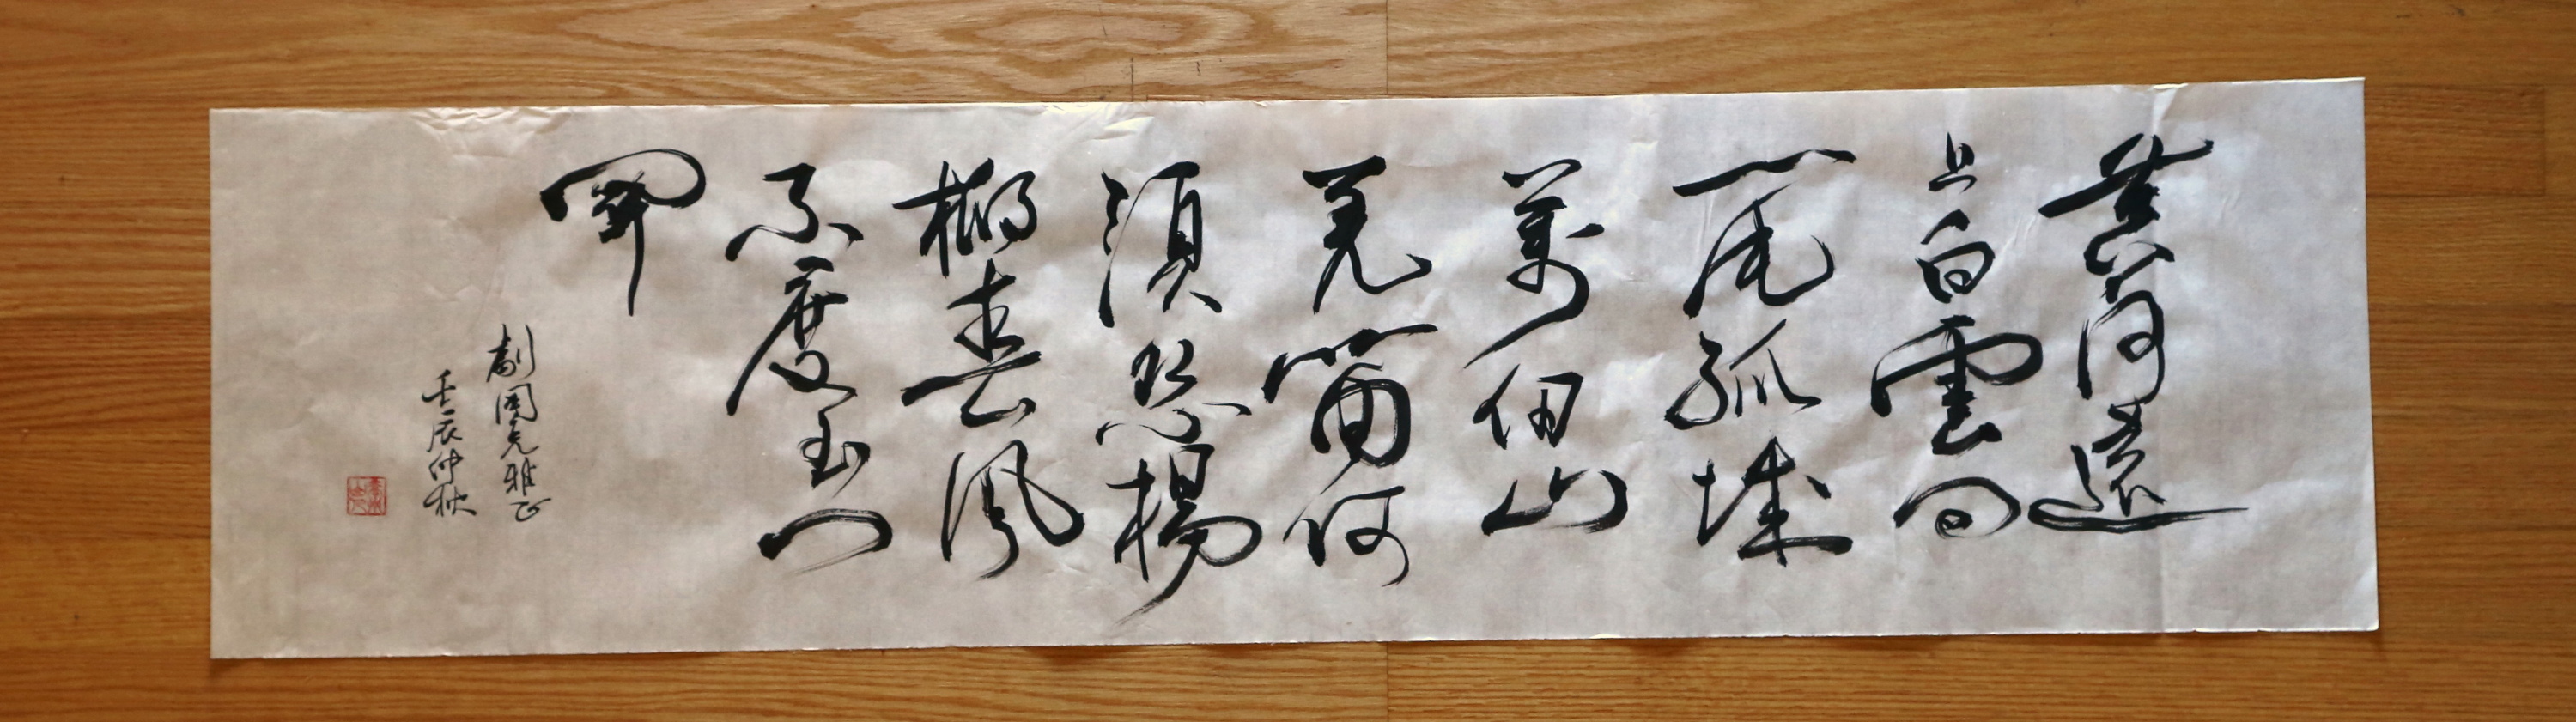 黄河遠
上白雲間
一片孤城
萬仞山
羌笛何
須怨楊
柳春風
不度玉門
關
兄雅正
壬辰仲秋